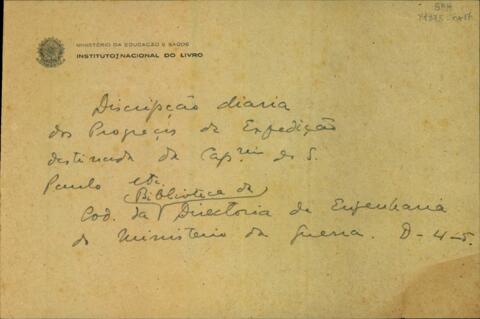 MINISTÉRIO DA EDUCAÇÃO E SAÚDE
INSTITUTO NACIONAL DO LIVRO
Discripção diaria
dos Progreçis da Expedição
destinada da Cap.nia de S.
Paulo etc.
Bibliotéca da
Cod. da Directoria de Engenharia
do Ministerio da Guerra. D-4-5.